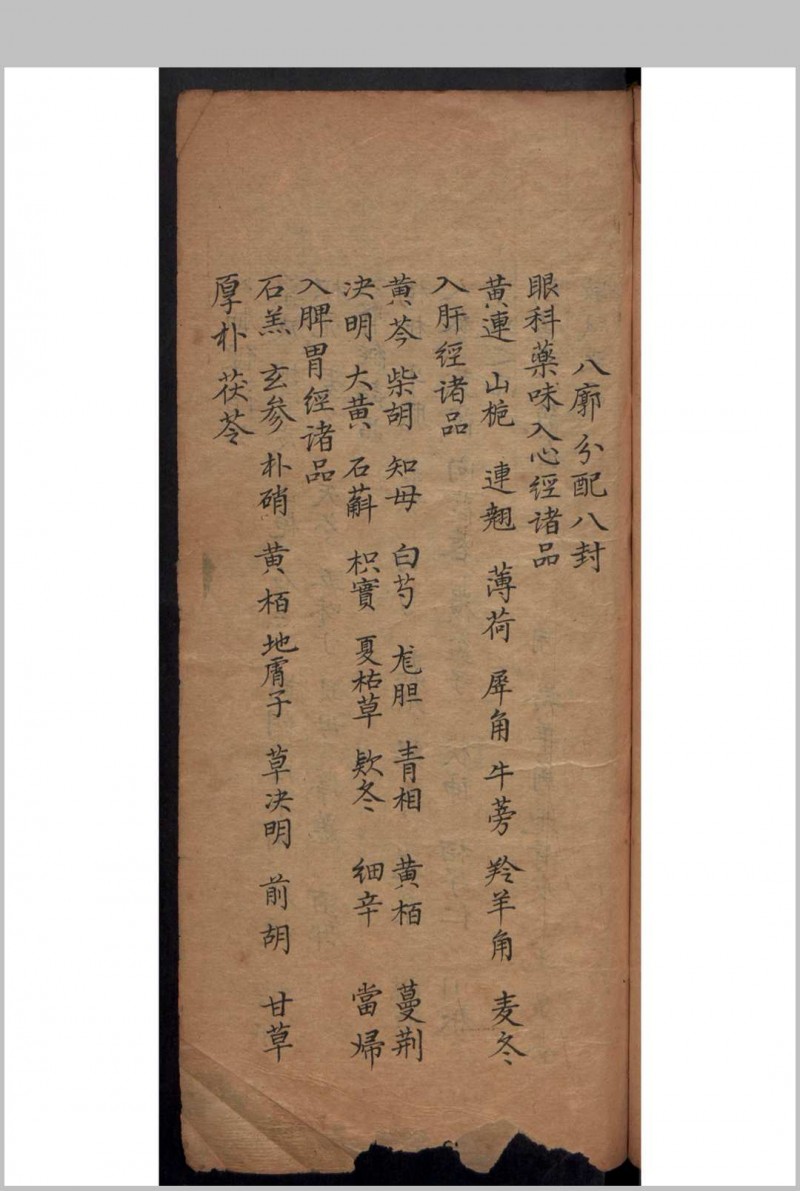 八廓分配八封
眼科藥味入心經诸品
黄連 山栀 連翘 薄荷 犀角 牛蒡 羚羊角 麦冬
入肝經诸品
黄芩 柴胡 知母 白芍 尨胆 青相 黄栢 蔓荆
决明 大黄 石斛 枳實 夏枯草 欵冬 细辛 當婦
入脾胃經诸品
石羔 玄参 朴硝 黄栢 地膚子 草决明 前胡 甘草
厚朴 茯苓